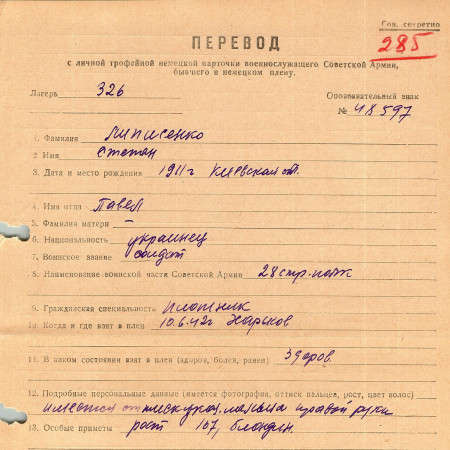 Сов. секретно
285
ПЕРЕВОД
с личной трофейной немецкой карточки военнослужащего Советской Армии,
бывшего в немецком плену.
Лагерь 326
Опознавательный знак
№ 48597
1. Фамилия Липисенко
2 Имя Степан
3. Дата и место рождения 1911 г Киевская об.
4. Имя отца Павел
5. Фамилия матери —
6. Национальность украинец
7. Воинское звание солдат
8. Наименование воинской части Советской Армии 28 стр. полк
9. Гражданская специальность плотник
10. Когда и где взят в плен 10.6.42 г Харьков
11. В каком состоянии взят в плен (здоров, болен, ранен) Здоров.
12. Подробные персональные данные (имеется фотография, оттиск пальцев, рост, цвет волос)
имеется оттиск указ. пальца правой руки
13. Особые приметы рост 167, блондин.